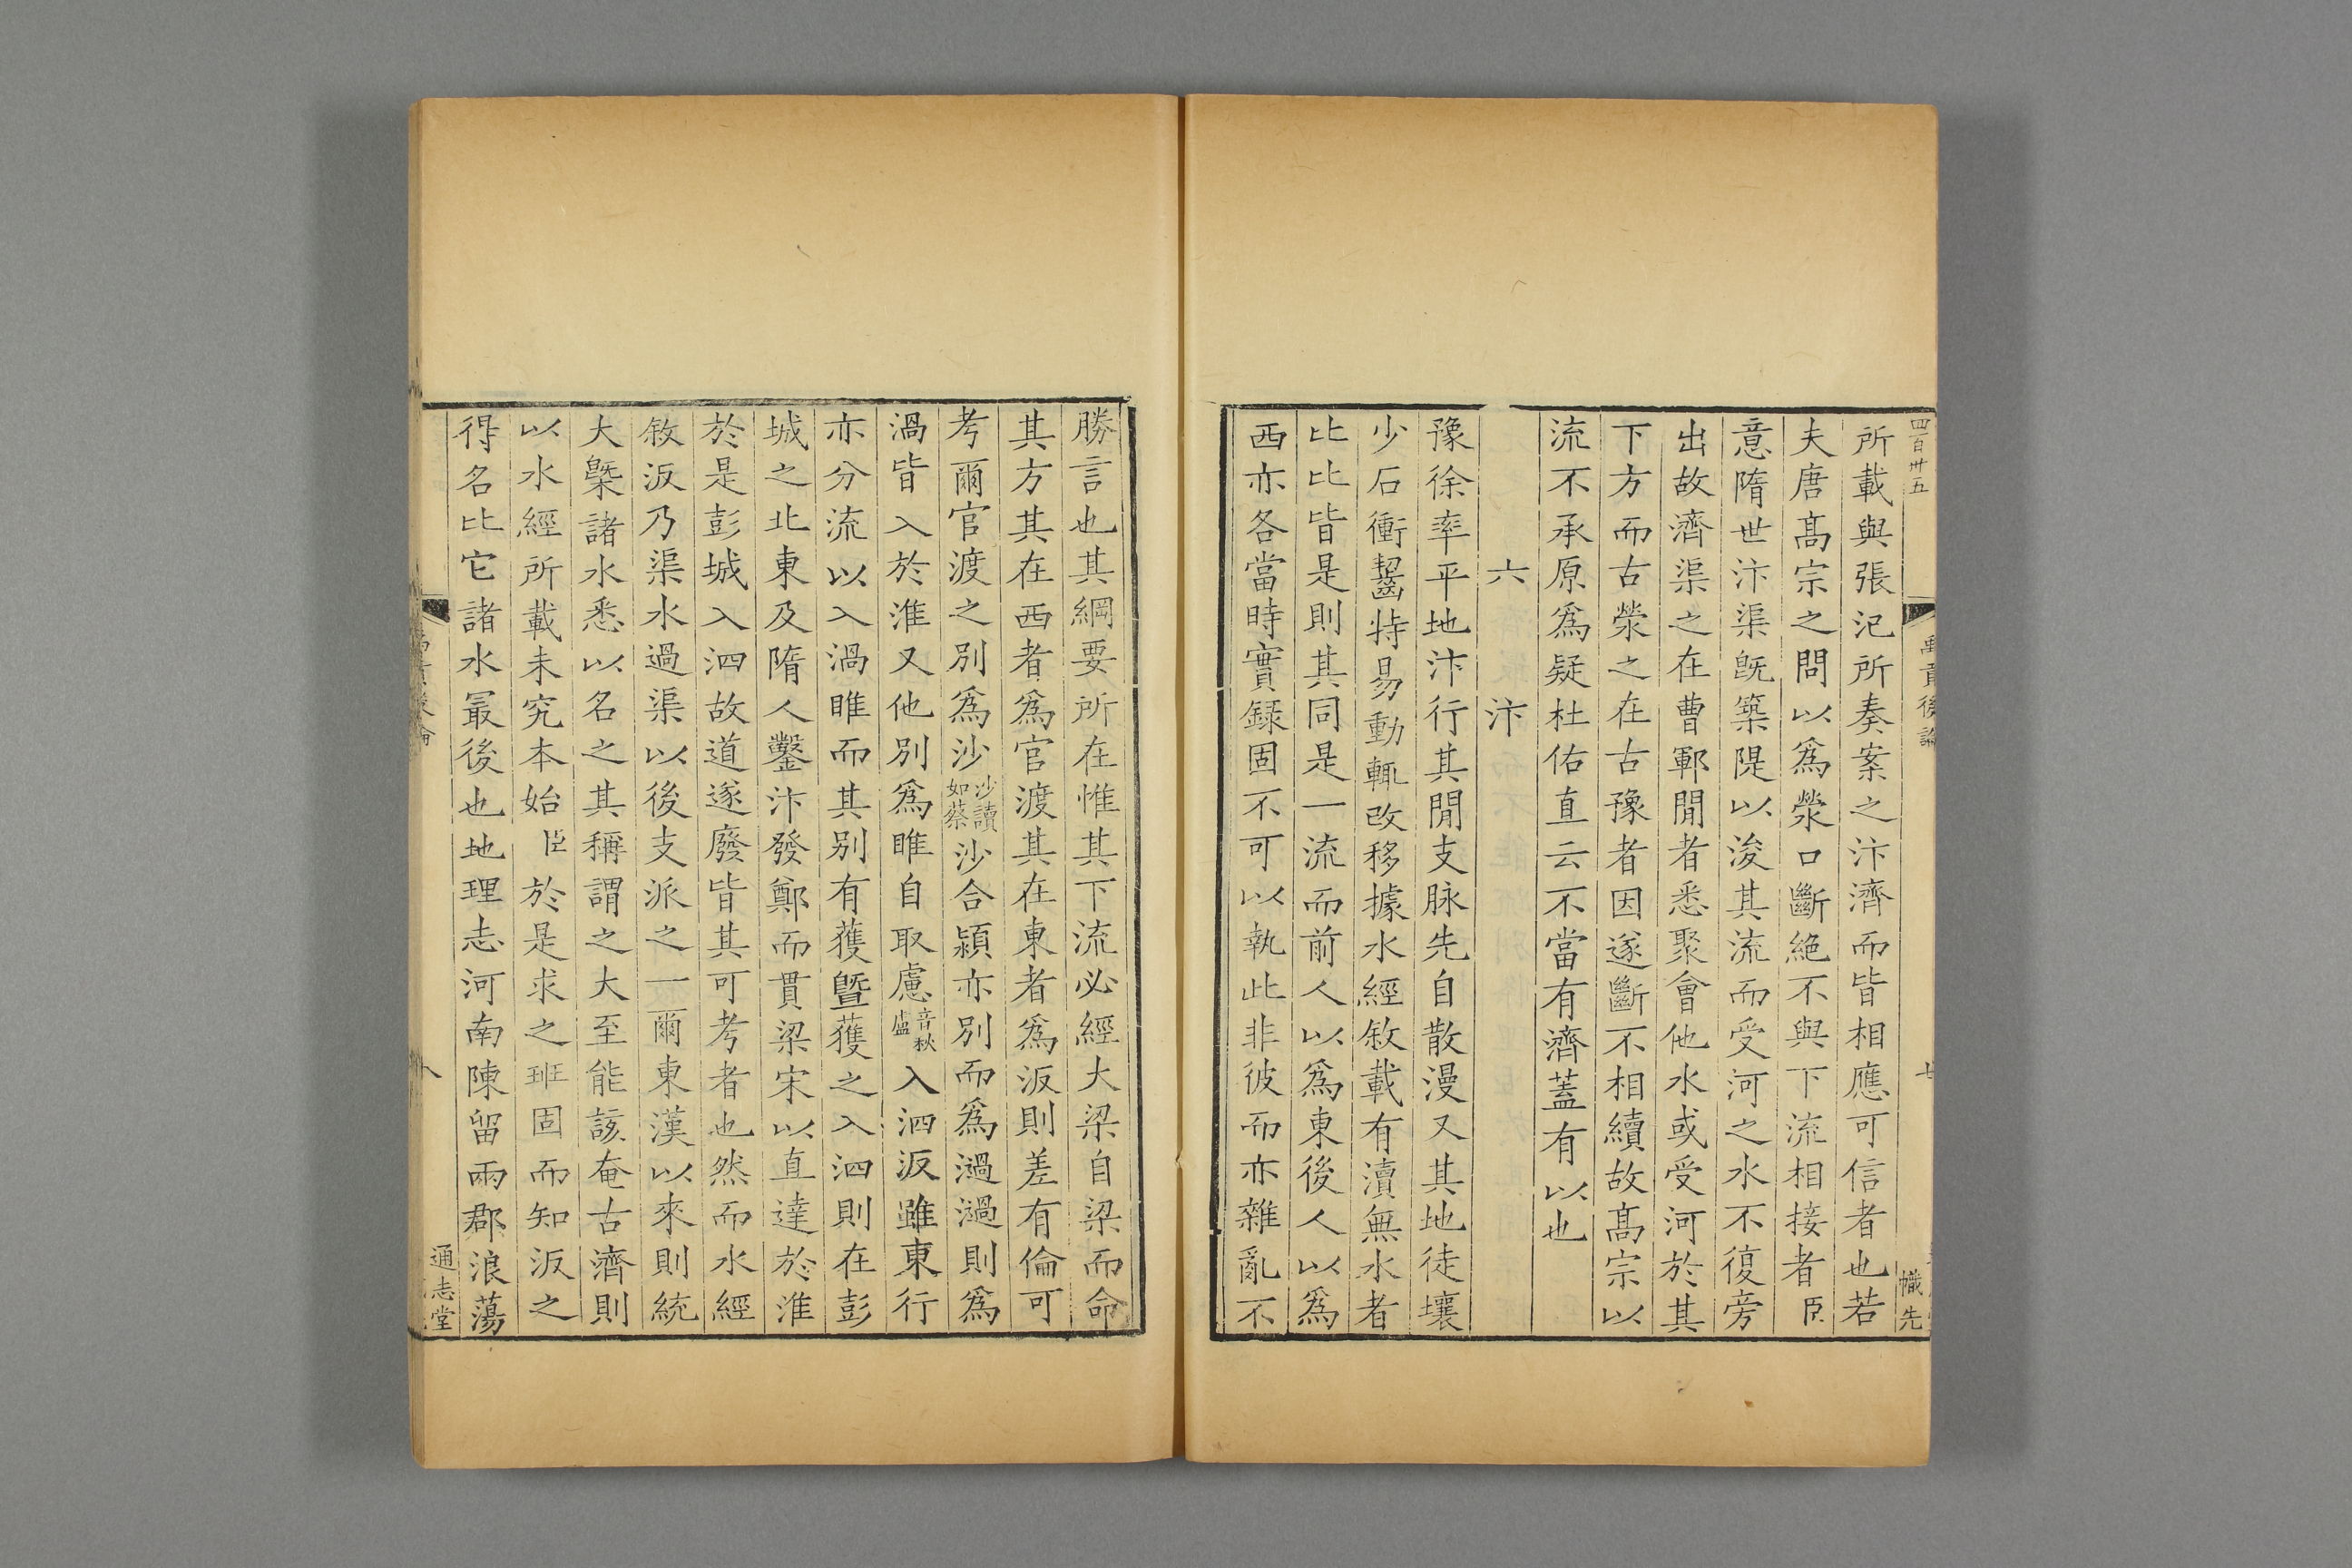 四百卅五
所載與張汜所奏案之汴濟而皆相應可信者也若
夫唐髙宗之問以爲滎口斷絶不與下流相接者臣
意隋世汴渠旣築隄以浚其流而受河之水不復旁
出故濟渠之在曹鄆閒者悉聚會他水或受河於其
下方而古滎之在古豫者因遂斷不相續故髙宗以
流不承原爲疑杜佑直云不當有濟蓋有以也
六 汴
豫徐率平地汴行其閒支脉先自散漫又其地徒壤
少石衝齧特易動輒改移據水經敘載有瀆無水者
比比皆是則其同是一流而前人以爲東後人以爲
西亦各當時實録固不可以執此非彼而亦雜亂不
禹貢後論
幟先
勝言也其綱要所在惟其下流必經大梁自梁而命
其方其在西者爲官渡其在東者爲汳則差有倫可
考爾官渡之別爲沙沙讀如蔡沙合潁亦別而爲濄濄則爲
渦皆入於淮又他別爲睢自取慮音秋盧入泗汳雖東行
亦分流以入渦睢而其別有獲曁獲之入泗則在彭
城之北東及隋人鑿汴發鄭而貫梁宋以直達於淮
於是彭城入泗故道遂廢皆其可考者也然而水經
敘汳乃渠水過渠以後支派之一爾東漢以來則統
大槩諸水悉以名之其稱謂之大至能該奄古濟則
以水經所載未究本始臣於是求之班固而知汳之
得名比它諸水最後也地理志河南陳留兩郡浪蕩
八
通志堂